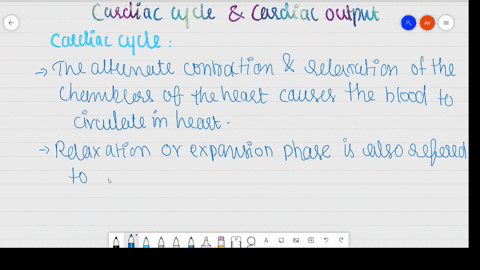 Cardiac cycle & Cardiac output
Cardiac cycle :
→ The alternate contration & relaxation of the
chambers of the heart causes the blood to
circulate in heart.
→ Relaxation or expansion phase is also refered
to